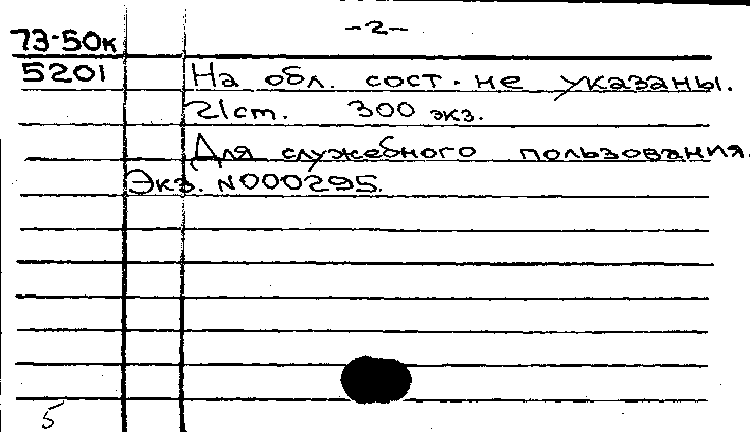 -2-
73-50к
5201 На обл. сост. не указаны.
21ст. 300 экз.
Для служебного пользования.
Экз. N000295.
5